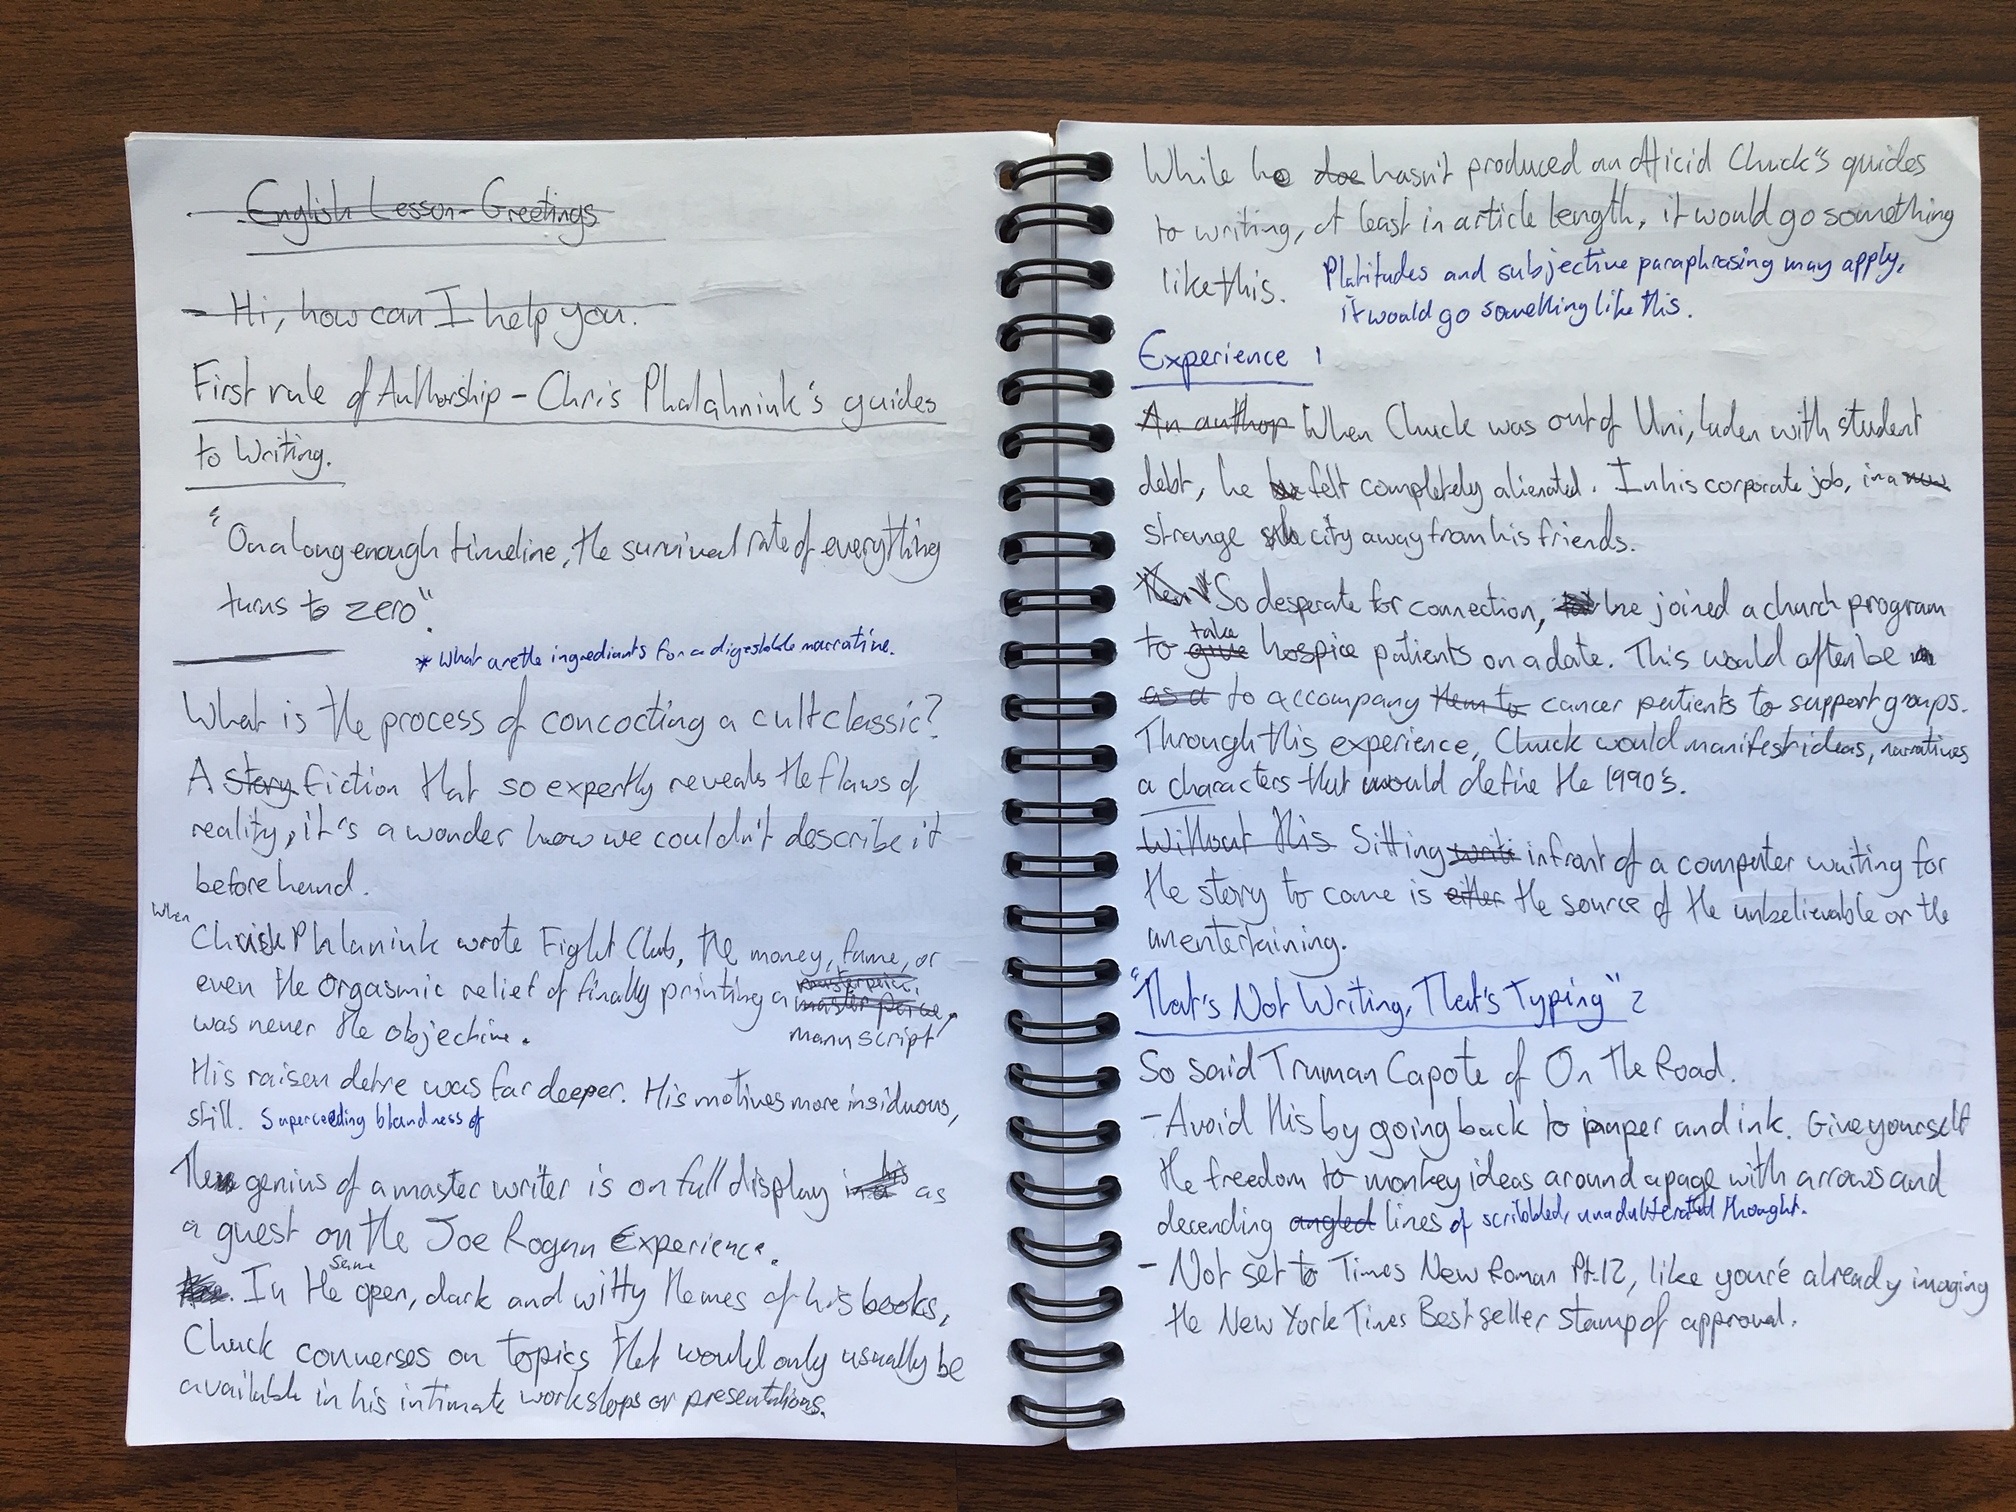 English Lesson - Greetings
- Hi, how can I help you.
First rule of Authorship - Chris Phalahniuk's guides
to Writing.
"On a long enough timeline, the survival rate of everything
turns to zero".
* What are the ingrediants for a digestable narrative.
What is the process of concocting a cult classic?
A story fiction that so expertly reveals the flaws of
reality, it's a wonder how we couldn't describe it
before hand.
When
Chuck Phlaniuk wrote Fight Club, the money, fame, or
even the orgasmic relief of finally printing a masterpeice.
was never the objective. manuscript
His raison detre was far deeper. His motives more insiduous,
still. Superceeding blandness of
The genius of a master writer is on full display in his as
a guest on the Joe Rogan Experience.
same
In the open, dark and witty themes of his books,
Chuck converses on topics that would only usually be
available in his intimate workshops or presentations.
While he doe hasn't produced an officid Chuck's guides
to writing, at least in article length, it would go something
like this. Platitudes and subjective paraphrasing may apply,
it would go something like this.
Experience 1
An author When Chuck was out of Uni, laden with student
debt, he felt completely alienated. In his corporate job, in a new
strange city away from his friends.
Then So desperate for connection, he joined a church program
take
to give hospice patients on a date. This would often be
as a to accompany them to cancer patients to support groups.
Through this experience, Chuck would manifest ideas, narratives
a characters that would define the 1990's.
Without this Sitting writi infront of a computer waiting for
the story to come is either the source of the unbelievable or the
unentertaining.
"That's Not Writing, That's Typing" 2
So said Truman Capote of On the Road.
- Avoid this by going back to paper and ink. Give yourself
the freedom to monkey ideas around a page with arrows and
decending angled lines of scribbled, unadulterated thought.
- Not set to Times New Roman Pt.12, like you're already imaging
the New York Times Best seller stamp of approval.